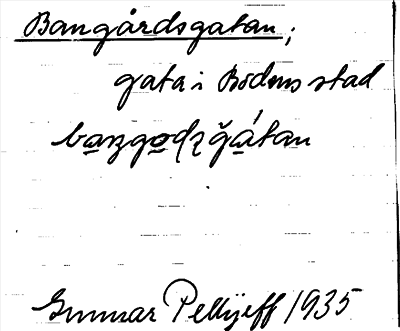 Bangårdsgatan;
gata i Bodens stad
Gunnar Pellijeff 1935